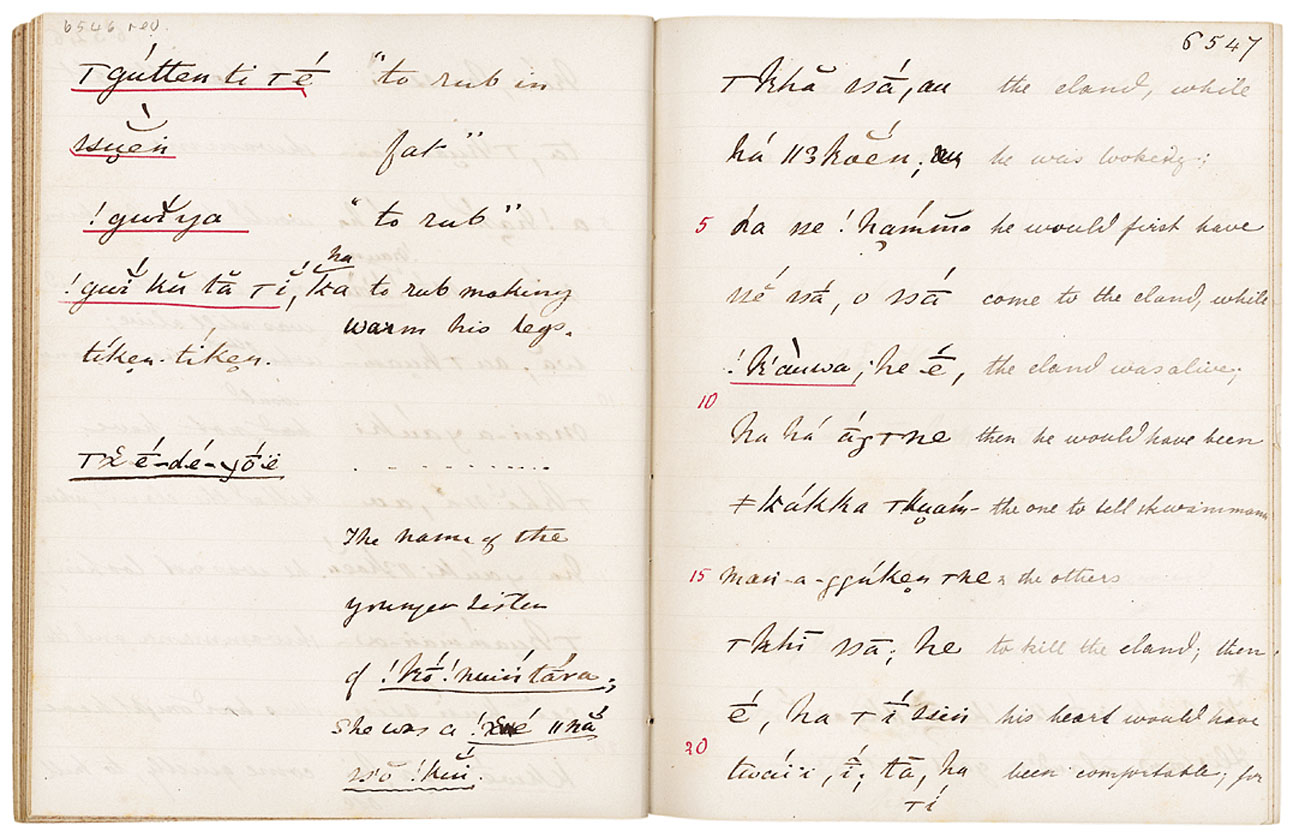 6546 rev.
ꞇgútten ti ꞇé̄ "to rub in
ssuĕń fat"
!gwĭ́ya "to rub"
ha
!gwĭ́ kŭ tă ꞇĭ́, ka to rub making
warm his legs.
tíken-tíken.
The name of the
younger sister
of !kó!nuiń tára;
she was a
6547
ꞇkhă sā́, au the eland, while
há he was looking;
5 ha se !hámmo he would first have
sé sā́, o sā́ come to the eland, while
!k'àuwa; he é̄, the eland was alive;
10
ha há ā́gꞇne then he would have been
ǂkákka ꞇkuám- the one to tell ꞇkwammang
15 man-a-ggúken ꞇne & the others
ꞇkhī sā; he to kill the eland; then
é̄, ha ꞇĭ́ ssin his heart would have
20
twáíi, ī́; tā, ha been comfortable; for
ꞇí